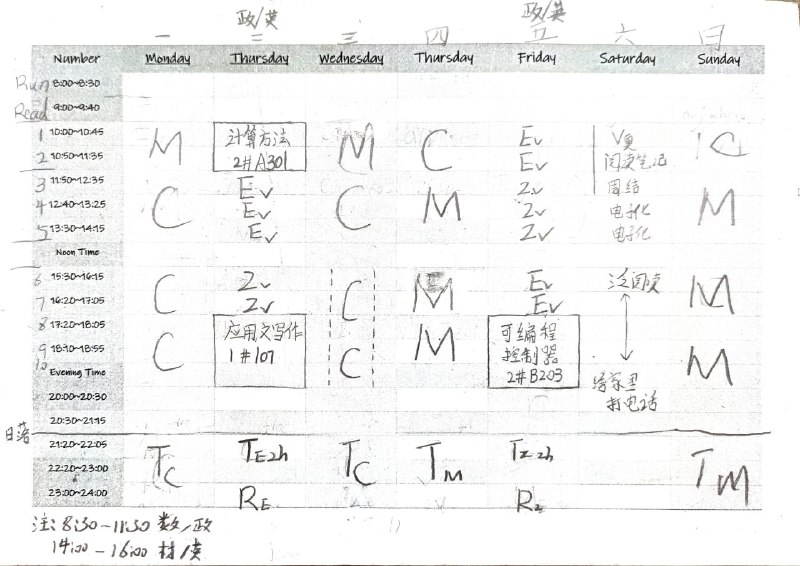 政/英 政/英
一 二 三 四 五 六 日
Number Monday Thursday Wednesday Thursday Friday Saturday Sunday
Run 8:00~8:30
Read 9:00~9:40
1 10:00~10:45 M 计算方法 M C Ev V更 C
2 10:50~11:35 2#A301 Ev 阅读笔记
3 11:50~12:35 Ev Zv 周结
4 12:40~13:25 C Ev C M Zv 电子化 M
5 13:30~14:15 Ev Zv 电子化
Noon Time
6 15:30~16:15 C Zv C M Ev 泛阅读 M
7 16:20~17:05 Zv Ev
8 17:20~18:05 应用文写作 可编程
9 18:10~18:55 C 1#107 C M 控制器 M
10 Evening Time 2#B203 给家里
20:00~20:30 打电话
20:30~21:15
日落
21:20~22:05 TC TE2h TC TM TZ2h TM
22:20~23:00
23:00~24:00 RE RZ
注: 8:30~11:30 数/政
14:00-16:00 材/英